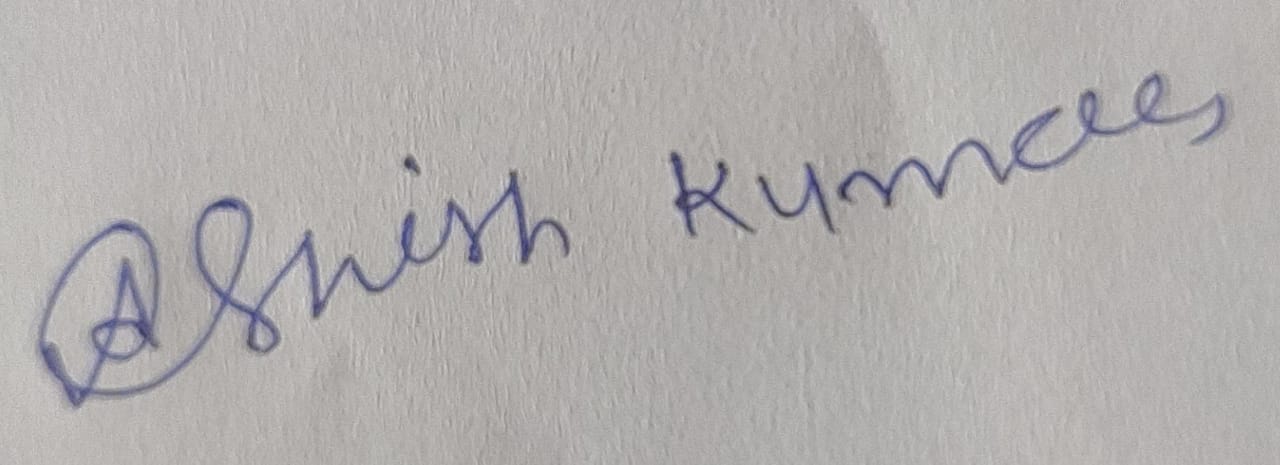 Ashish Kumar